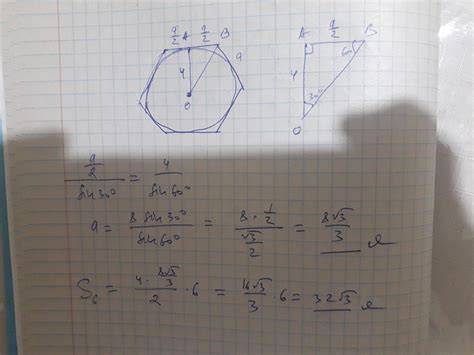 a/2 A a/2 B
a
4
O
A a/2 B
60°
4
30°
O
(a/2)/sin30° = 4/sin60°
a = 8 sin30°/sin60° = (8·1/2)/(√3/2) = 8√3/3
S₆ = (4·8√3/3)/2 · 6 = 16√3/3 · 6 = 32√3